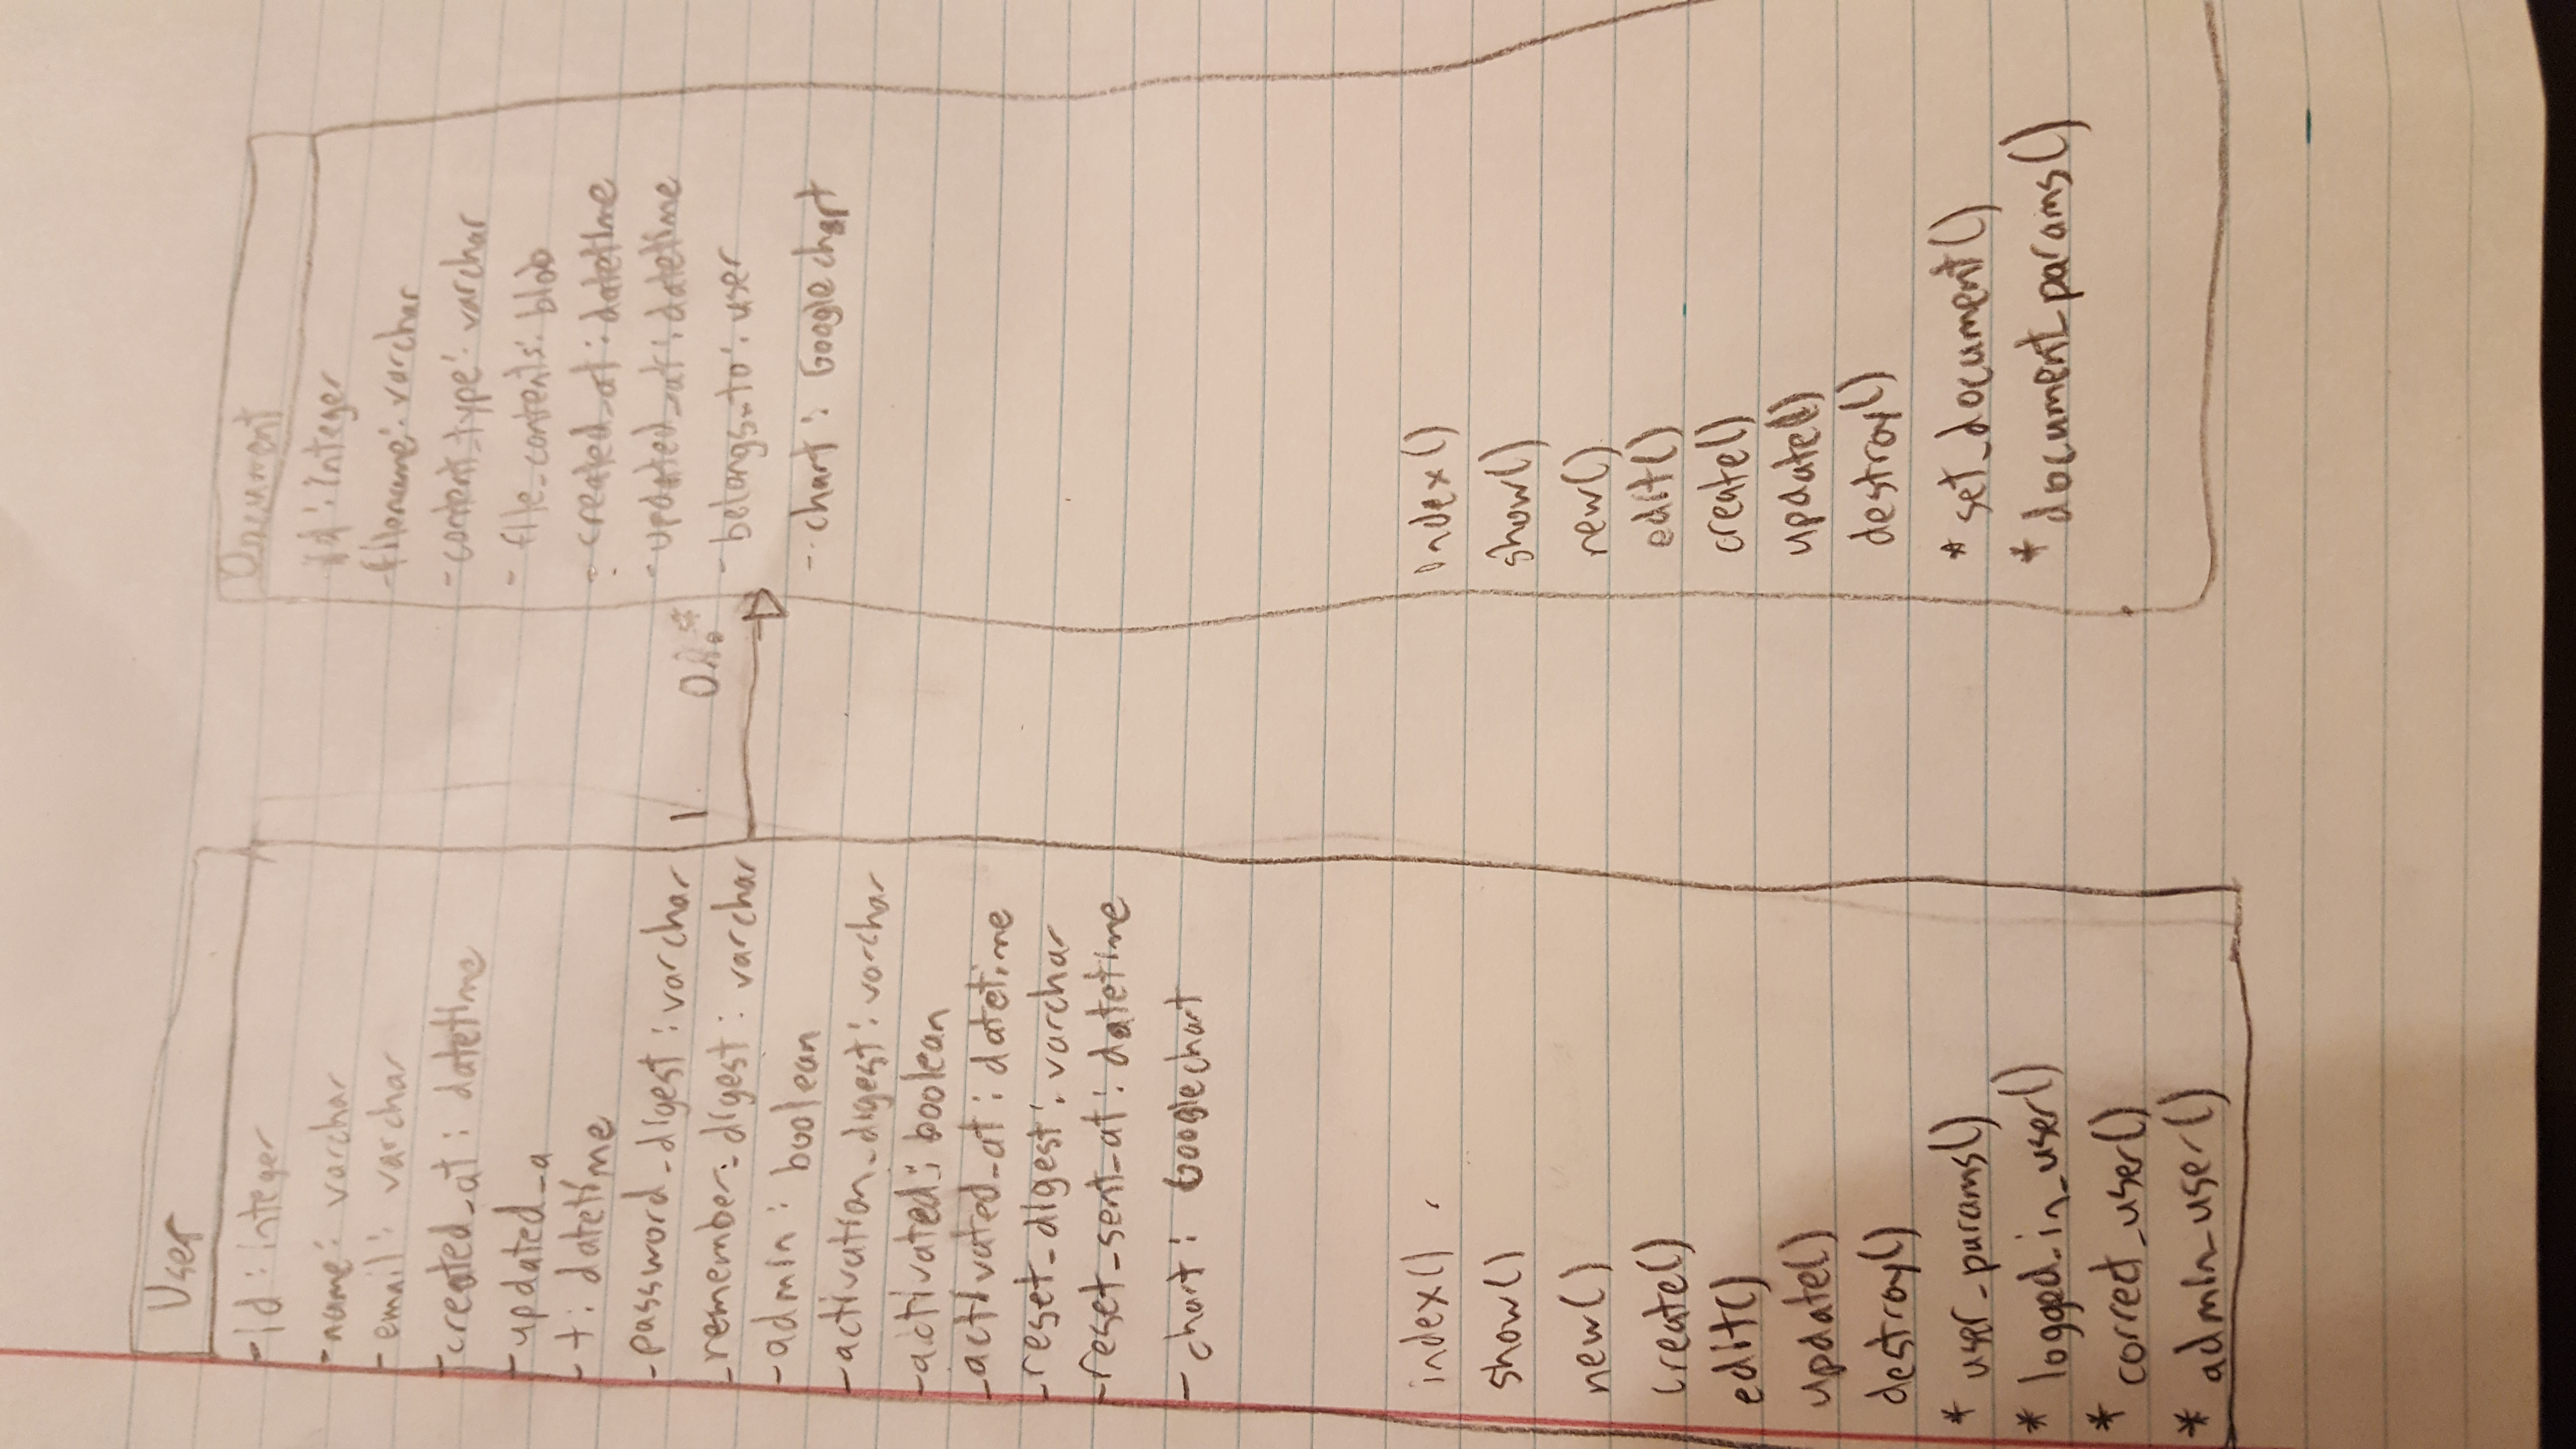 User
-id: integer
-name: varchar
-email: varchar
-created_at: datetime
-updated_a
-t: datetime
-password_digest: varchar
-remember_digest: varchar
-admin: boolean
-activation_digest: varchar
-activated: boolean
-activated_at: datetime
-reset_digest: varchar
-reset_sent_at: datetime
-chart: Googlechart
index()
show()
new()
create()
edit()
update()
destroy()
* user_params()
* logged_in_user()
* correct_user()
* admin_user()
1
0..*
Document
id: integer
-filename: varchar
-content_type: varchar
-file_contents: blob
-created_at: datetime
-updated_at: datetime
-belongs_to: user
-chart: Googlechart
index()
show()
new()
edit()
create()
update()
destroy()
* set_document()
* document_params()